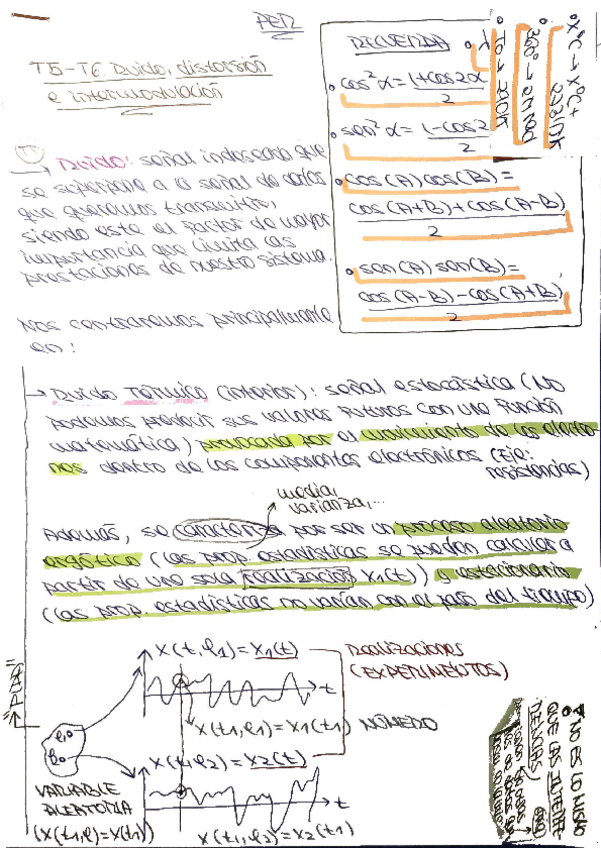 PER
T5-T6 Ruido, distorsión
e intermodulación
RECUERDA
cos²α = 1+cos2α
2
sen²α = 1-cos2
2
cos(A)cos(B) =
cos(A+B)+cos(A-B)
2
sen(A)sen(B) =
cos(A-B)-cos(A+B)
2
x°C → x°C+
273,15K
360° → 2π rad
T0 → 290K
Ruido: señal indeseada que
se superpone a la señal de datos
que queremos transmitir,
siendo este el factor de mayor
importancia que limita las
prestaciones de nuestro sistema.
Nos centraremos principalmente
en:
→ Ruido Térmico (interior): señal estocástica (No
podemos predecir sus valores futuros con una función
matemática) provocada por el movimiento de los electro-
nes dentro de los componentes electrónicos (Eje:
resistencias)
media,
varianza,...
Además, se caracteriza por ser un proceso aleatorio
ergótico (las prop. estadísticas se pueden calcular a
partir de una sola realización x1(t)) y estacionario
(las prop. estadísticas no varían con el paso del tiempo)
x(t,e1)=x1(t)
Realizaciones
(EXPERIMENTOS)
t
x(t1,e1)=x1(t1) NÚMERO
x(t,e2)=x2(t)
VARIABLE
ALEATORIA
(x(t1,e)=x(t1))
t
x(t1,e2)=x2(t1)
NO ES LO MISMO
QUE LAS INTERFE-
RENCIAS